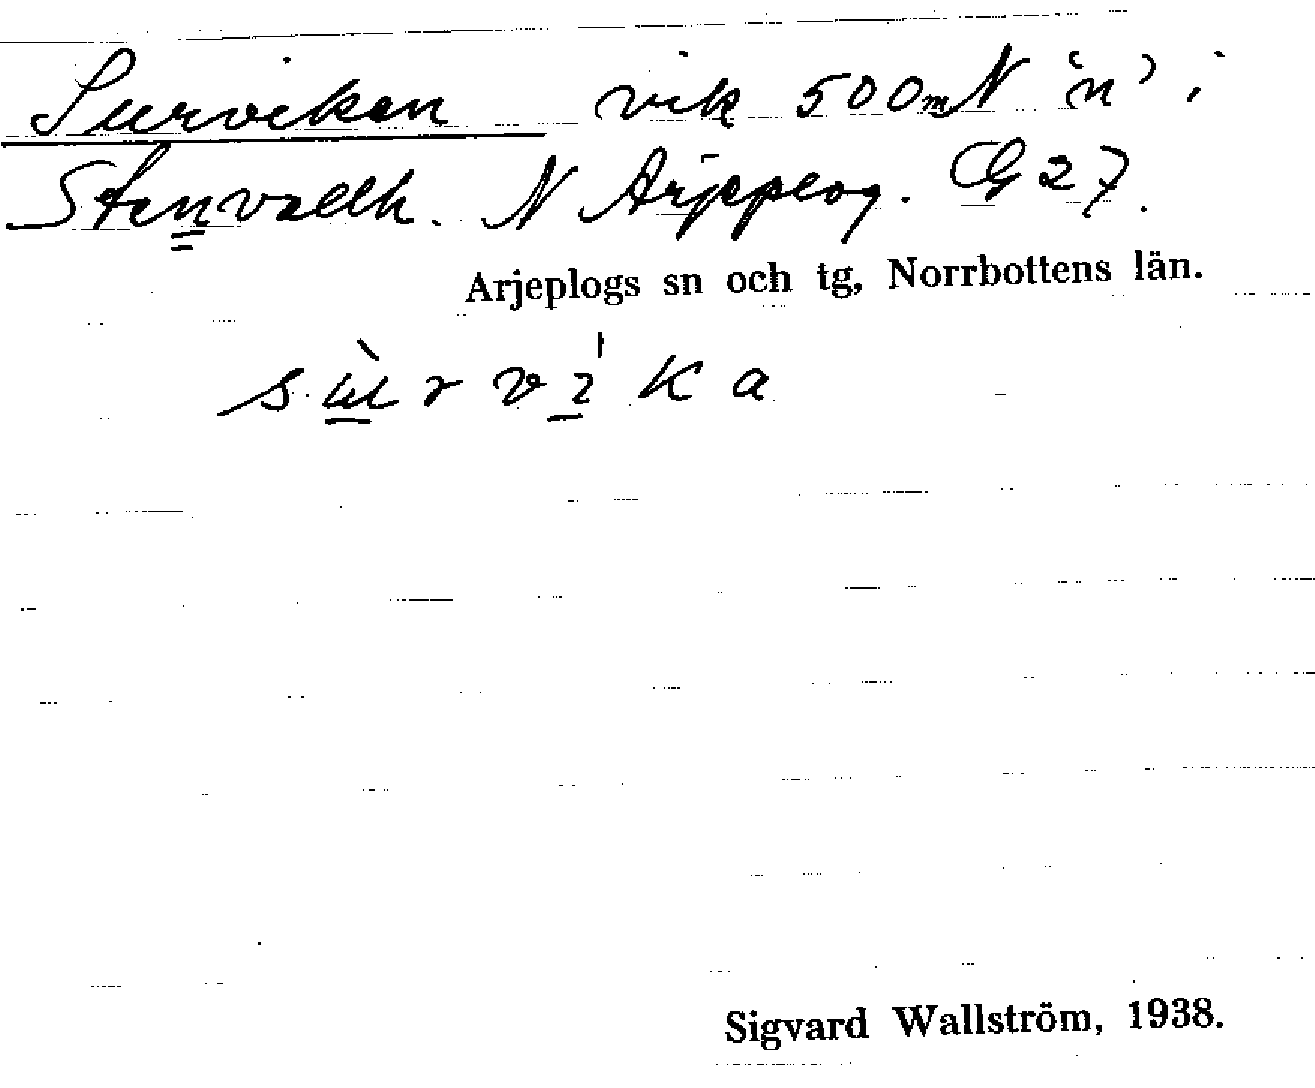 Surviken vik 500 m N 'n' i
Stenvallh. N Arjeplog. G 27.
Arjeplogs sn och tg, Norrbottens län.
Sigvard Wallström, 1938.